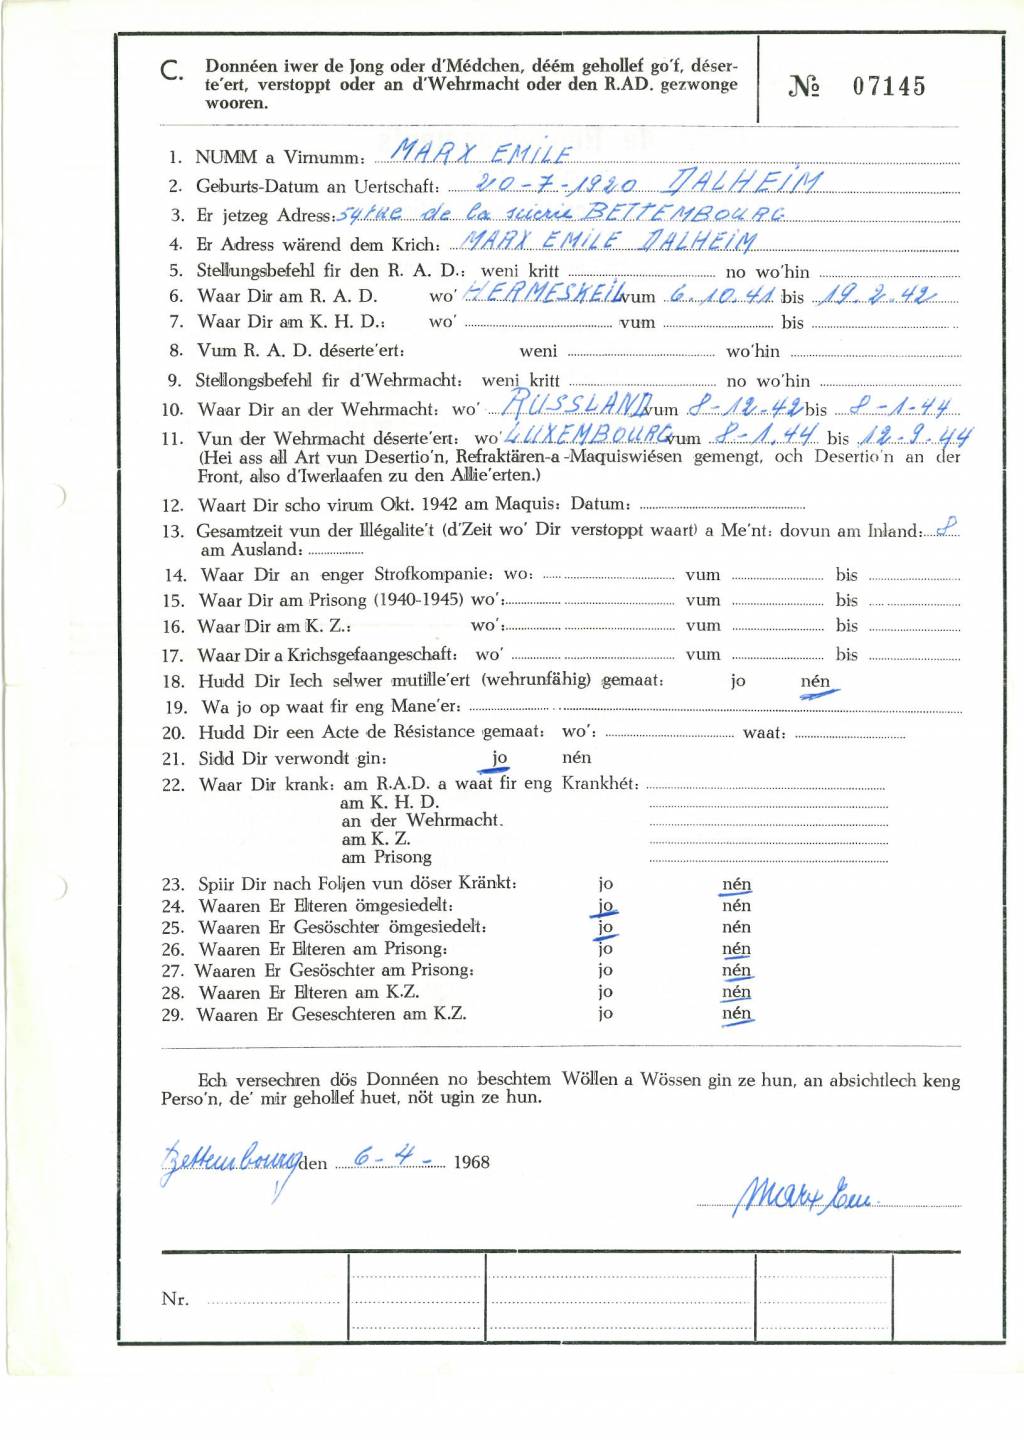 C. Donnéen iwer de Jong oder d'Médchen, déém gehollef go'f, déser-
te'ert, verstoppt oder an d'Wehrmacht oder den R.AD. gezwonge
wooren.
№ 07145
1. NUMM a Virnumm: MARX EMILE
2. Geburts-Datum an Uertschaft: 20-7-1920 DALHEIM
3. Er jetzeg Adress: de la scierie BETTEMBOURG
4. Er Adress wärend dem Krich: MARX EMILE DALHEIM
5. Stellungsbefehl fir den R. A. D.: weni kritt no wo'hin
6. Waar Dir am R. A. D. wo' HERMESKEIL vum 6.10.41 bis 19.2.42
7. Waar Dir am K. H. D.: wo' vum bis
8. Vum R. A. D. déserte'ert: weni wo'hin
9. Stellongsbefehl fir d'Wehrmacht: weni kritt no wo'hin
10. Waar Dir an der Wehrmacht: wo' RUSSLAND vum 8-12-42 bis 8-1-44
11. Vun der Wehrmacht déserte'ert: wo' LUXEMBOURG vum 8-1.44 bis 12-9.44
(Hei ass all Art vun Desertio'n, Refraktären-a-Maquiswiésen gemengt, och Desertio'n an der
Front, also d'Iwerlaafen zu den Allie'erten.)
12. Waart Dir scho virum Okt. 1942 am Maquis: Datum:
13. Gesamtzeit vun der Illégalite't (d'Zeit wo' Dir verstoppt waart) a Me'nt: dovun am Inland: 8
am Ausland:
14. Waar Dir an enger Strofkompanie: wo: vum bis
15. Waar Dir am Prisong (1940-1945) wo': vum bis
16. Waar Dir am K. Z.: wo': vum bis
17. Waar Dir a Krichsgefaangeschaft: wo' vum bis
18. Hudd Dir Iech selwer mutille'ert (wehrunfähig) gemaat: jo nén
19. Wa jo op waat fir eng Mane'er:
20. Hudd Dir een Acte de Résistance gemaat: wo': waat:
21. Sidd Dir verwondt gin: jo nén
22. Waar Dir krank: am R.A.D. a waat fir eng Krankhét:
am K. H. D.
an der Wehrmacht.
am K. Z.
am Prisong
23. Spiir Dir nach Foljen vun döser Kränkt: jo nén
24. Waaren Er Elteren ömgesiedelt: jo nén
25. Waaren Er Gesöschter ömgesiedelt: jo nén
26. Waaren Er Elteren am Prisong: jo nén
27. Waaren Er Gesöschter am Prisong: jo nén
28. Waaren Er Elteren am K.Z. jo nén
29. Waaren Er Geseschteren am K.Z. jo nén
Ech versechren dös Donnéen no beschtem Wöllen a Wössen gin ze hun, an absichtlech keng
Perso'n, de' mir gehollef huet, nöt ugin ze hun.
Bettembourg den 6-4- 1968
Marx Em.
Nr.